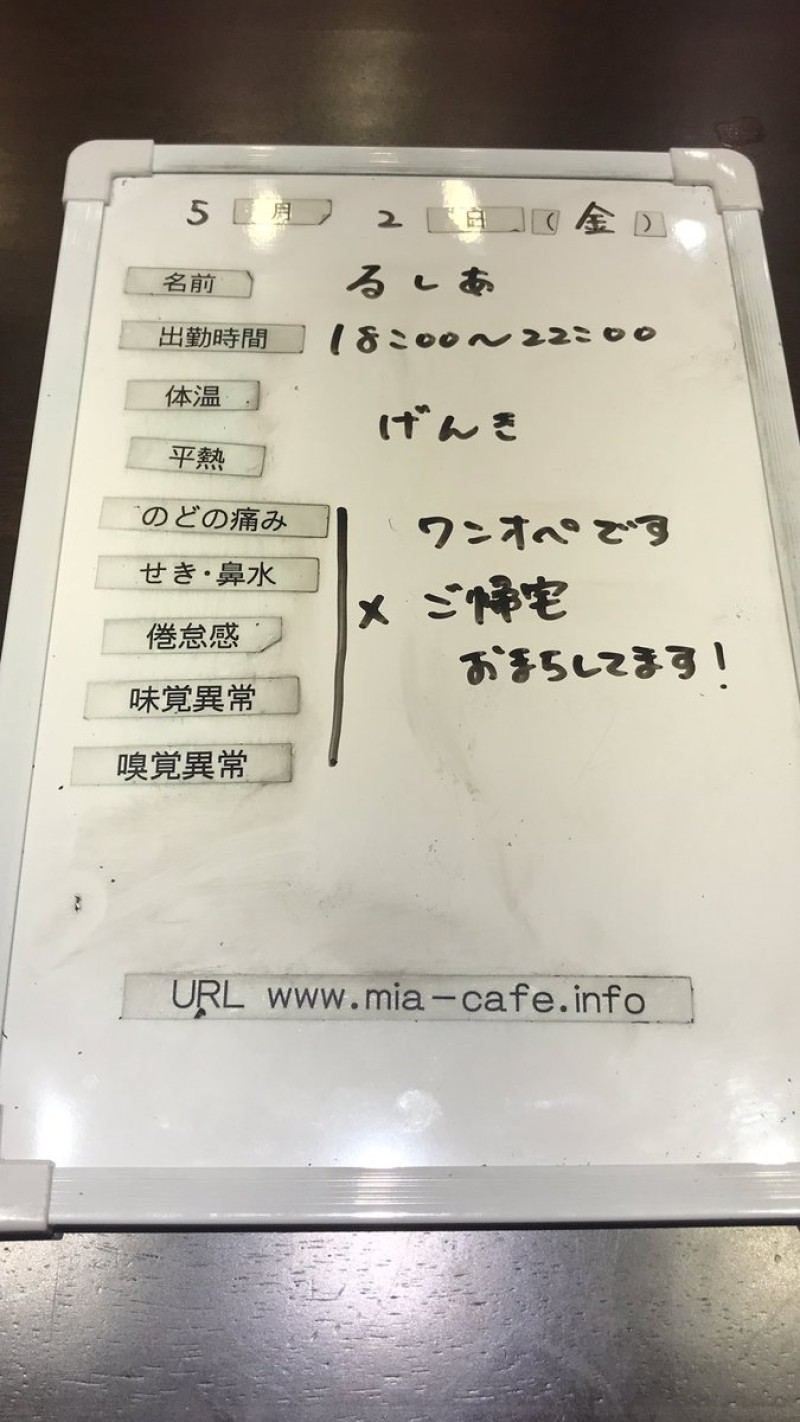 5月2日(金)
名前 るしあ
出勤時間 18:00〜22:00
体温
げんき
平熱
のどの痛み ワンオペです
せき・鼻水
× ご帰宅
倦怠感
おまちしてます!
味覚異常
嗅覚異常
URL www.mia-cafe.info